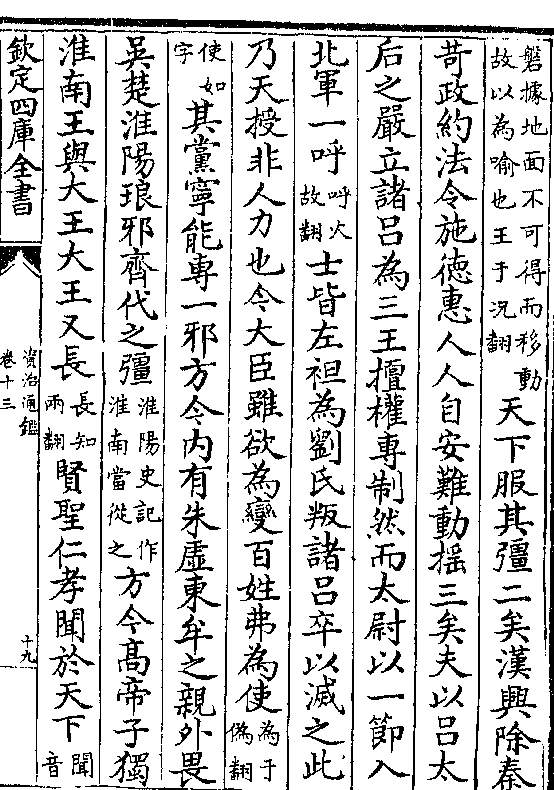 磐據地面不可得而移動
故以為喻也王于况翻
天下服其彊二矣漢興除秦
苛政約法令施德惠人人自安難動揺三矣夫以吕太
后之嚴立諸吕為三王擅權專制然而太尉以一節入
北軍一呼
呼火
故翻
士皆左袒為劉氏叛諸吕卒以滅之此
乃天授非人力也今大臣雖欲為變百姓弗為使
為于
偽翻
使如
字
其黨寧能專一邪方今内有朱虛東牟之親外畏
吳楚淮陽琅邪齊代之彊
淮陽史記作
淮南當從之
方今高帝子獨
淮南王與大王大王又長
長知
兩翻
賢聖仁孝聞於天下
聞
音
欽定四庫全書
資治通鑑
卷十三
十九